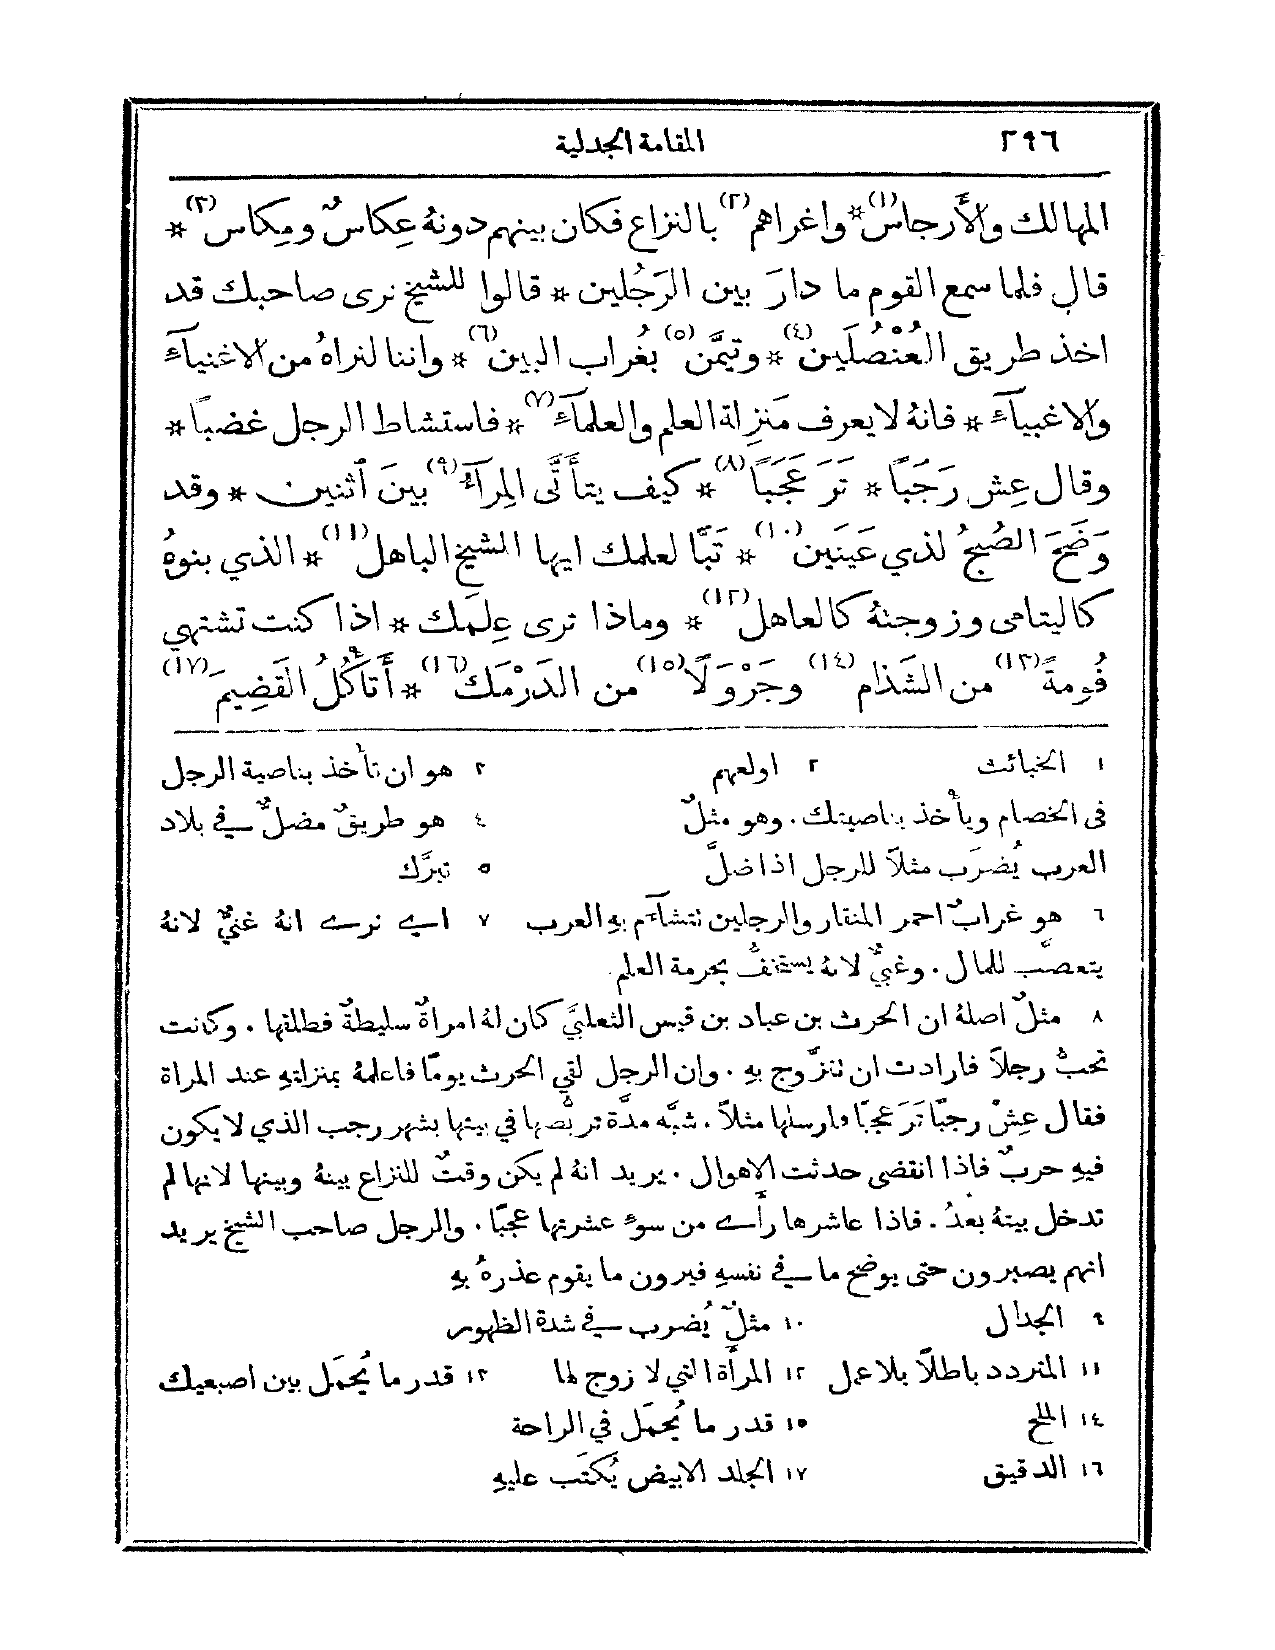 ٢٩٦ المقامة الجدلية
المهالك والأَرجاس(١) * واغراهم(٢) بالنزاع فكان بينهم دونهُ عِكاسٌ ومِكاس(٣) *
قال فلما سمع القوم ما دارَ بين الرَجُلين * قالوا للشيخ نرى صاحبك قد
اخذ طريق العُنْصُلَين(٤) * وتيمَّن(٥) بغُراب البين(٦) * واننا لنراهُ من الاغنيآءِ
والاغبيآءِ * فانهُ لا يعرف مَنزِلة العلم والعلمآءِ(٧) * فاستشاط الرجل غضبًا *
وقال عِش رَجَبًا * تَرَ عَجَبًا(٨) * كيف يتأَتَّى المِرآءُ(٩) بينَ ٱثنين * وقد
وَضَحَ الصُبحُ لذي عَينَين(١٠) * تَبًّا لعلمك ايها الشيخ الباهل(١١) * الذي بنوهُ
كاليتامى وزوجتهُ كالعاهل(١٢) * وماذا ترى عِلمَك * اذا كنت تشتهي
قُومةً(١٣) من الشَذَام(١٤) وجَرْوَلًا(١٥) من الدَرْمَك(١٦) * أَتأْكُلُ القَضِيمَ(١٧)
١ الخبائث ٢ اولعهم ٣ هو ان تأخذ بناصية الرجل
في الخصام ويأخذ بناصيتك. وهو مثلٌ ٤ هو طريقٌ مضلٌّ في بلاد
العرب يُضرَب مثلاً للرجل اذا ضلَّ ٥ تبرَّك
٦ هو غرابٌ احمر المنقار والرجلين تتشآءم بهِ العرب ٧ اي نرى انهُ غنيٌّ لانهُ
يتعصَّب للمال. وغبيٌّ لانهُ يستخفُّ بحرمة العلم
٨ مثلٌ اصلهُ ان الحرث بن عباد بن قيس الثعلبيَّ كان لهُ امراةٌ سليطةٌ فطلقها. وكانت
تحبُّ رجلاً فارادت ان تتزَّوج بهِ. وان الرجل لقي الحرث يومًا فاعلمهُ بمنزلتهِ عند المراة
فقال عِشْ رجبًا تَرَ عجبًا فارسلها مثلاً. شبَّه مدَّة تربُّصها في بيتها بشهر رجب الذي لا يكون
فيهِ حربٌ فاذا انقضى حدثت الاهوال. يريد انهُ لم يكن وقتٌ للنزاع بينهُ وبينها لانها لم
تدخل بيتهُ بعدُ. فاذا عاشرها رأى من سوء عشرتها عجبًا. والرجل صاحب الشيخ يريد
انهم يصبرون حتى يوضح ما في نفسهِ فيرون ما يقوم عذرهُ بهِ
٩ الجدال ١٠ مثلٌ يُضرب في شدة الظهور
١١ المتردد باطلاً بلا عمل ١٢ المرأة التي لا زوج لها ١٣ قدر ما يُحمَل بين اصبعيك
١٤ الملح ١٥ قدر ما يُحمَل في الراحة
١٦ الدقيق ١٧ الجلد الابيض يُكتَب عليهِ